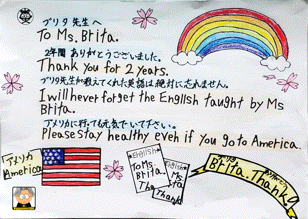 ブリタ 先生へ
To Ms. Brita.
2年間 ありがとうございました。
Thank you for 2 years.
ブリタ先生が教えてくれた英語は絶対に忘れません。
I will never forget the English taught by Ms
Brita.
アメリカに行っても元気でいて下さい。
Please stay healthy even if you go to America.
アメリカ
America
English
To Ms.
Brita.
Tha
English
Ms
ita
Thank
Brita. Thank